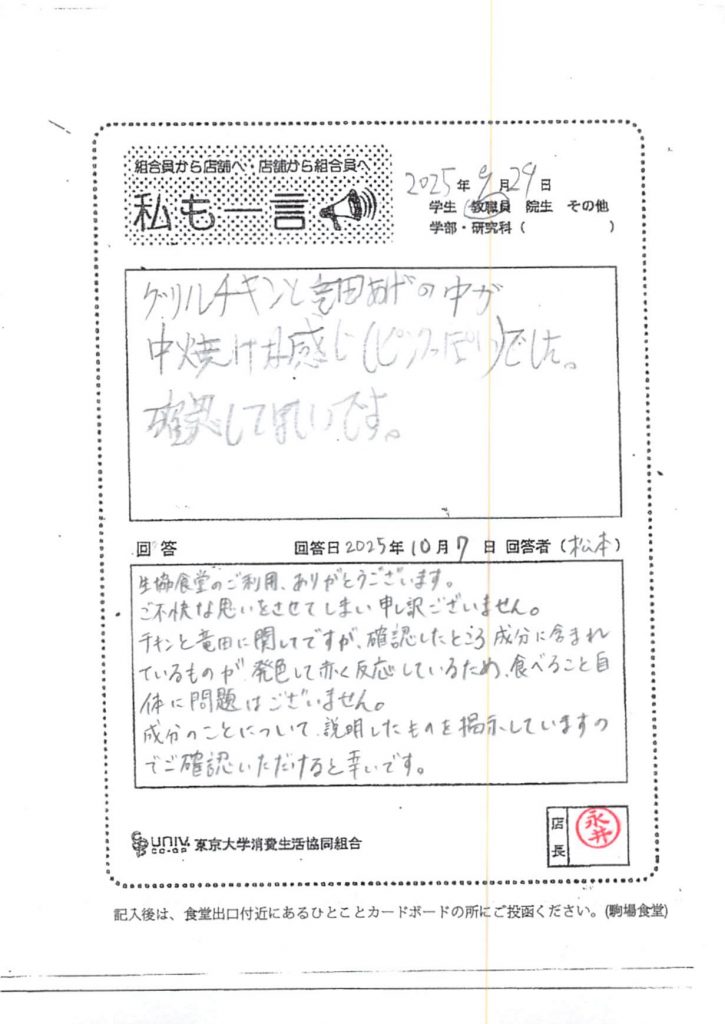 組合員から店舗へ・店舗から組合員へ
私も一言
2025年9月29日
学生 教職員 院生 その他
学部・研究科( )
グリルチキンと竜田あげの中が
中焼けな感じ(ピンクっぽい)でした。
確認してほしいです。
回答 回答日2025年10月7日 回答者(松本)
生協食堂のご利用、ありがとうございます。
ご不快な思いをさせてしまい申し訳ございません。
チキンと竜田に関してですが、確認したところ成分に含まれ
ているものが、発色して赤く反応しているため、食べること自
体に問題はございません。
成分のことについて、説明したものを掲示していますの
でご確認いただけると幸いです。
UNIV.
CO-OP
東京大学消費生活協同組合
店長
永井
記入後は、食堂出口付近にあるひとことカードボードの所にご投函ください。(駒場食堂)